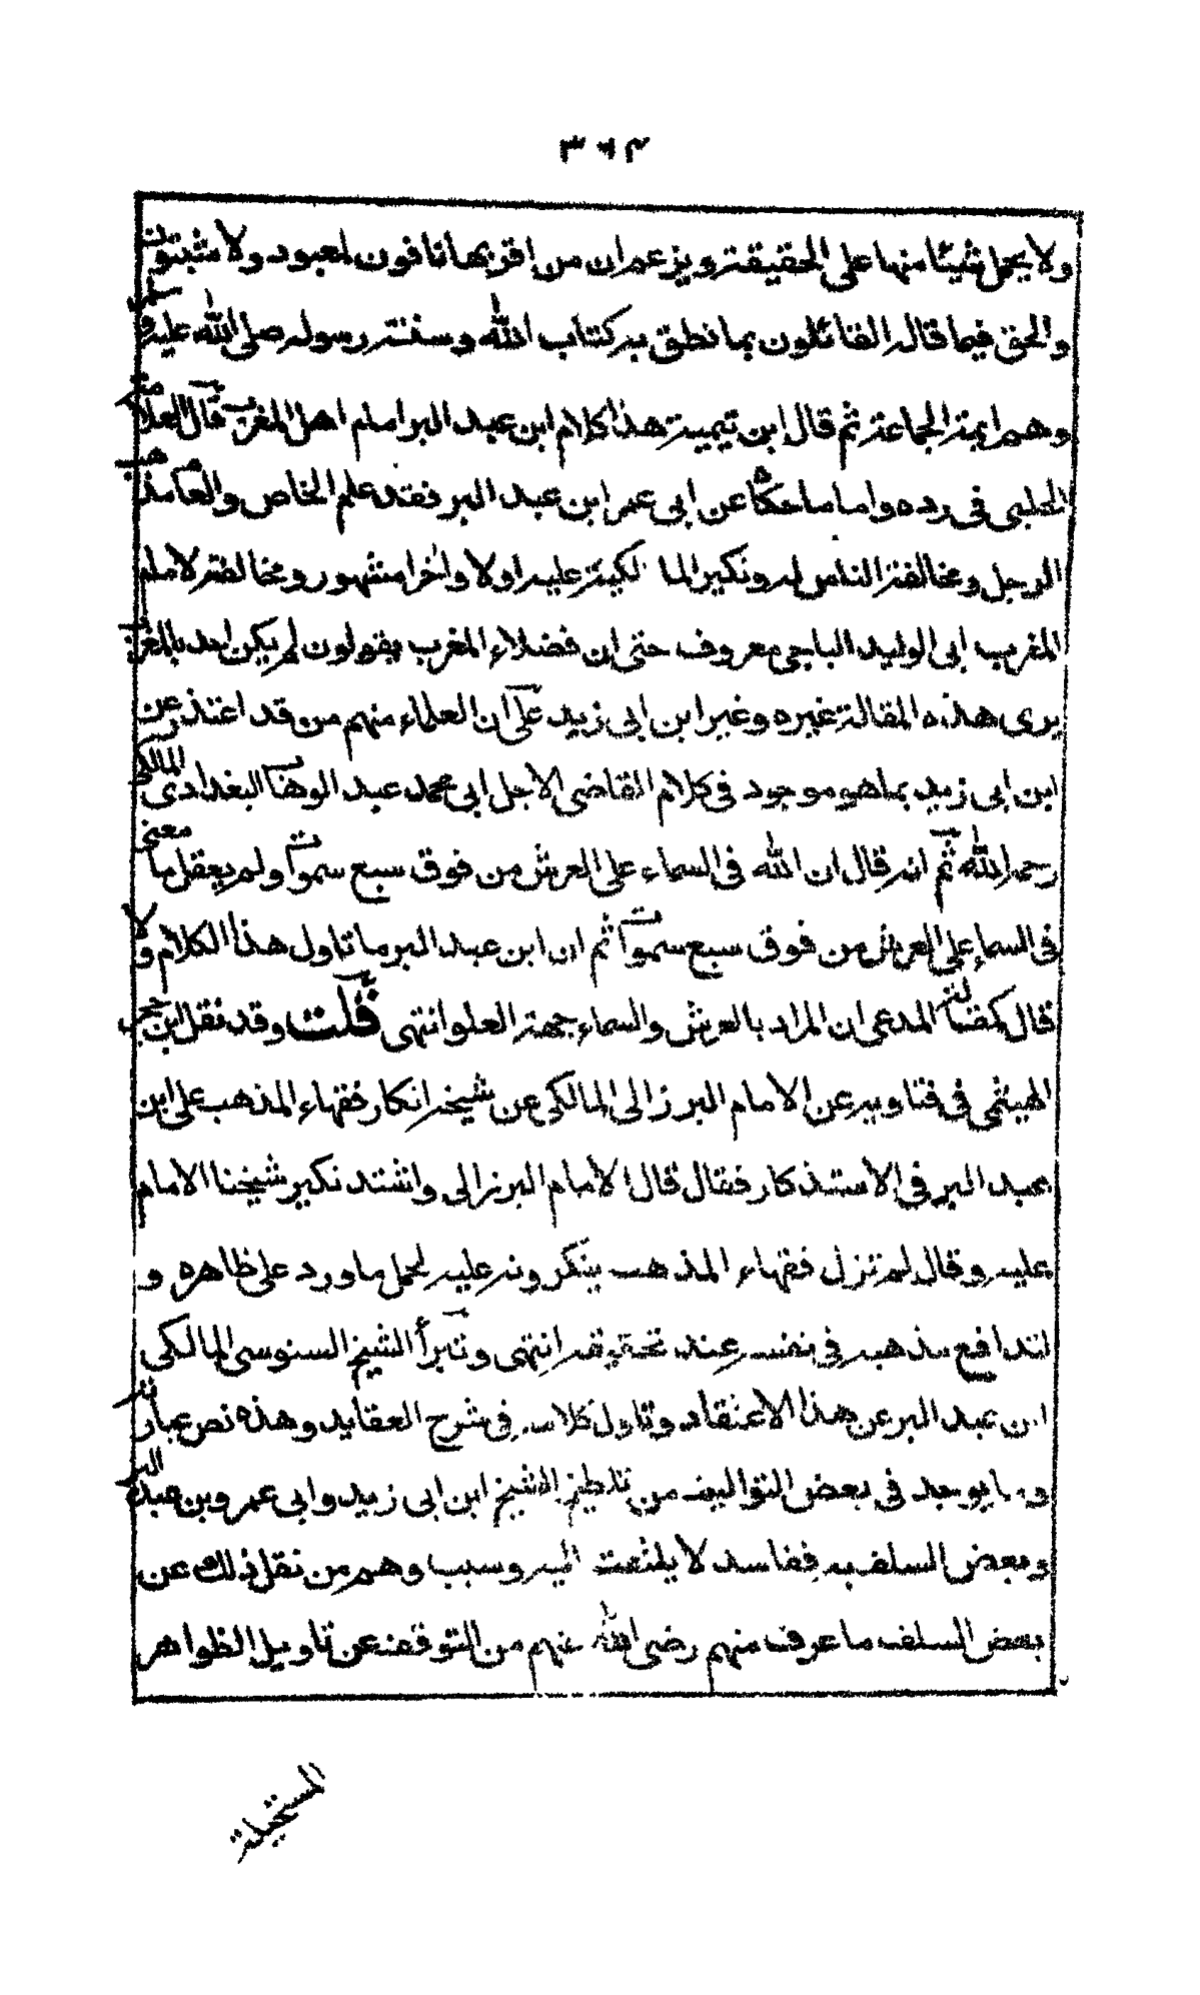 ٣٦٢
ولا يحمل شيئا منها على الحقيقة ويزعم ان من اقر بها نافون لمعبود ولا مثبتون
والحق فيما قال القائلون بما نطق به كتاب الله وسنة رسوله صلى الله عليه وسلم
وهم ايمة الجماعة ثم قال ابن تيمية هذا كلام ابن عبد البر امام اهل المغرب قال العلامة
الحلبى فى رده واما ما حكاه عن ابى عمر ابن عبد البر فقد علم الخاص والعام مذهب
الرجل ومخالفة الناس له ونكير المالكية عليه اولا واخرا مشهور ومخالفته لامام
المغرب ابى الوليد الباجى معروف حتى ان فضلاء المغرب يقولون لم يكن احد بالمغرب
يرى هذه المقالة غيره وغير ابن ابى زيد على ان العلماء منهم من قد اعتذر عن
ابن ابى زيد بما هو موجود فى كلام القاضى الاجل ابى محمد عبد الوهاب البغدادى المالكى
رحمه الله ثم انه قال ان الله فى السماء على العرش من فوق سبع سموات ولم يعقل ما معنى
فى السماء على العرش من فوق سبع سموات ثم ان ابن عبد البر ما تاول هذا الكلام ولا
قال كمقالة المدعى ان المراد بالعرش والسماء جهة العلو انتهى قلت وقد نقل ابن حجر
الهيثمى فى فتاويه عن الامام البرزالى المالكى عن شيخه انكار فقهاء المذهب على ابن
عبد البر فى الاستذكار فقال قال الامام البرزالى واشتد نكير شيخنا الامام
عليه وقال لم تزل فقهاء المذهب ينكرونه عليه لحمل ما ورد على ظاهره و
لتدافع مذهبه فى نفسه عند تحقيقه انتهى وتبرأ الشيخ السنوسى المالكى
ابن عبد البر عن هذا الاعتقاد وتاول كلامه فى شرح العقايد وهذه نص عبارته
وما يوجد فى بعض التواليف من تلطيخ الشيخ ابن ابى زيد وابى عمر وبن عبد البر
وبعض السلف به ففاسد لا يلتفت اليه وسبب وهم من نقل ذلك عن
بعض السلف ما عرف منهم رضى الله عنهم من التوقف عن تاويل الظواهر
المستحيلة